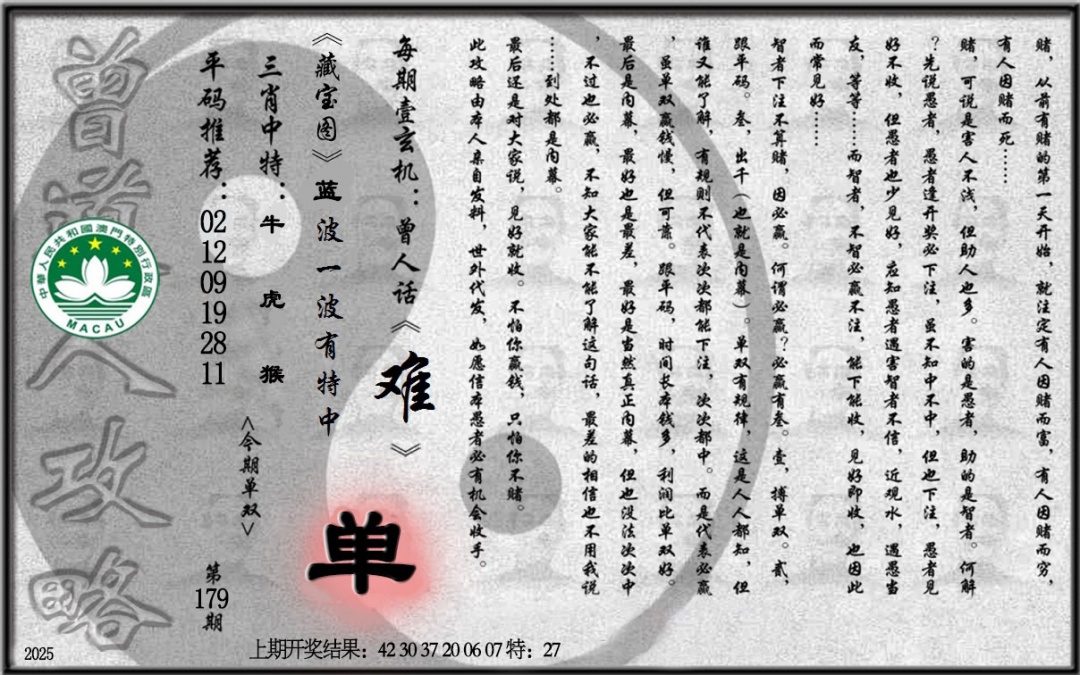 赌，从前有赌的第一天开始，就注定有人因赌而富，有人因赌而穷，
有人因赌而死……
赌，可说是害人不浅，但助人也多。害的是愚者，助的是智者。何解
？先说愚者，愚者逢开奖必下注，虽不知中不中，但也下注，愚者见
好不收，但愚者也少见好，应知愚者遇害智者不信，近观水，遇愚当
友，等等……而智者，不智必赢不注，能下能收，见好即收，也因此
而常见好……
智者下注不算赌，因必赢。何谓必赢？必赢有叁。壹，搏单双。贰，
跟平码。叁，出千（也就是内幕）。单双有规律，这是人人都知，但
谁又能了解，有规则不代表次次都能下注，次次都中。而是代表必赢
，虽单双赢钱慢，但可靠。跟平码，时间长本钱多，利润比单双好。
最后是内幕，最好也是最差，最好是当然真正内幕，但也没法次次中
，不过也必赢，不知大家能不能了解这句话，最差的相信也不用我说
……到处都是内幕。
最后还是对大家说，见好就收。不怕你赢钱，只怕你不赌。
此攻略由本人亲自发料，世外代发，如愿信本愚者必有机会收手。
每期壹玄机：曾人话《难》
《藏宝图》蓝波一波有特中
三肖中特：牛 虎 猴
平码推荐：02 12 09 19 28 11
<今期单双>
单
第179期
曾道人攻略
中華人民共和國澳門特別行政區
MACAU
2025
上期开奖结果：42 30 37 20 06 07 特：27